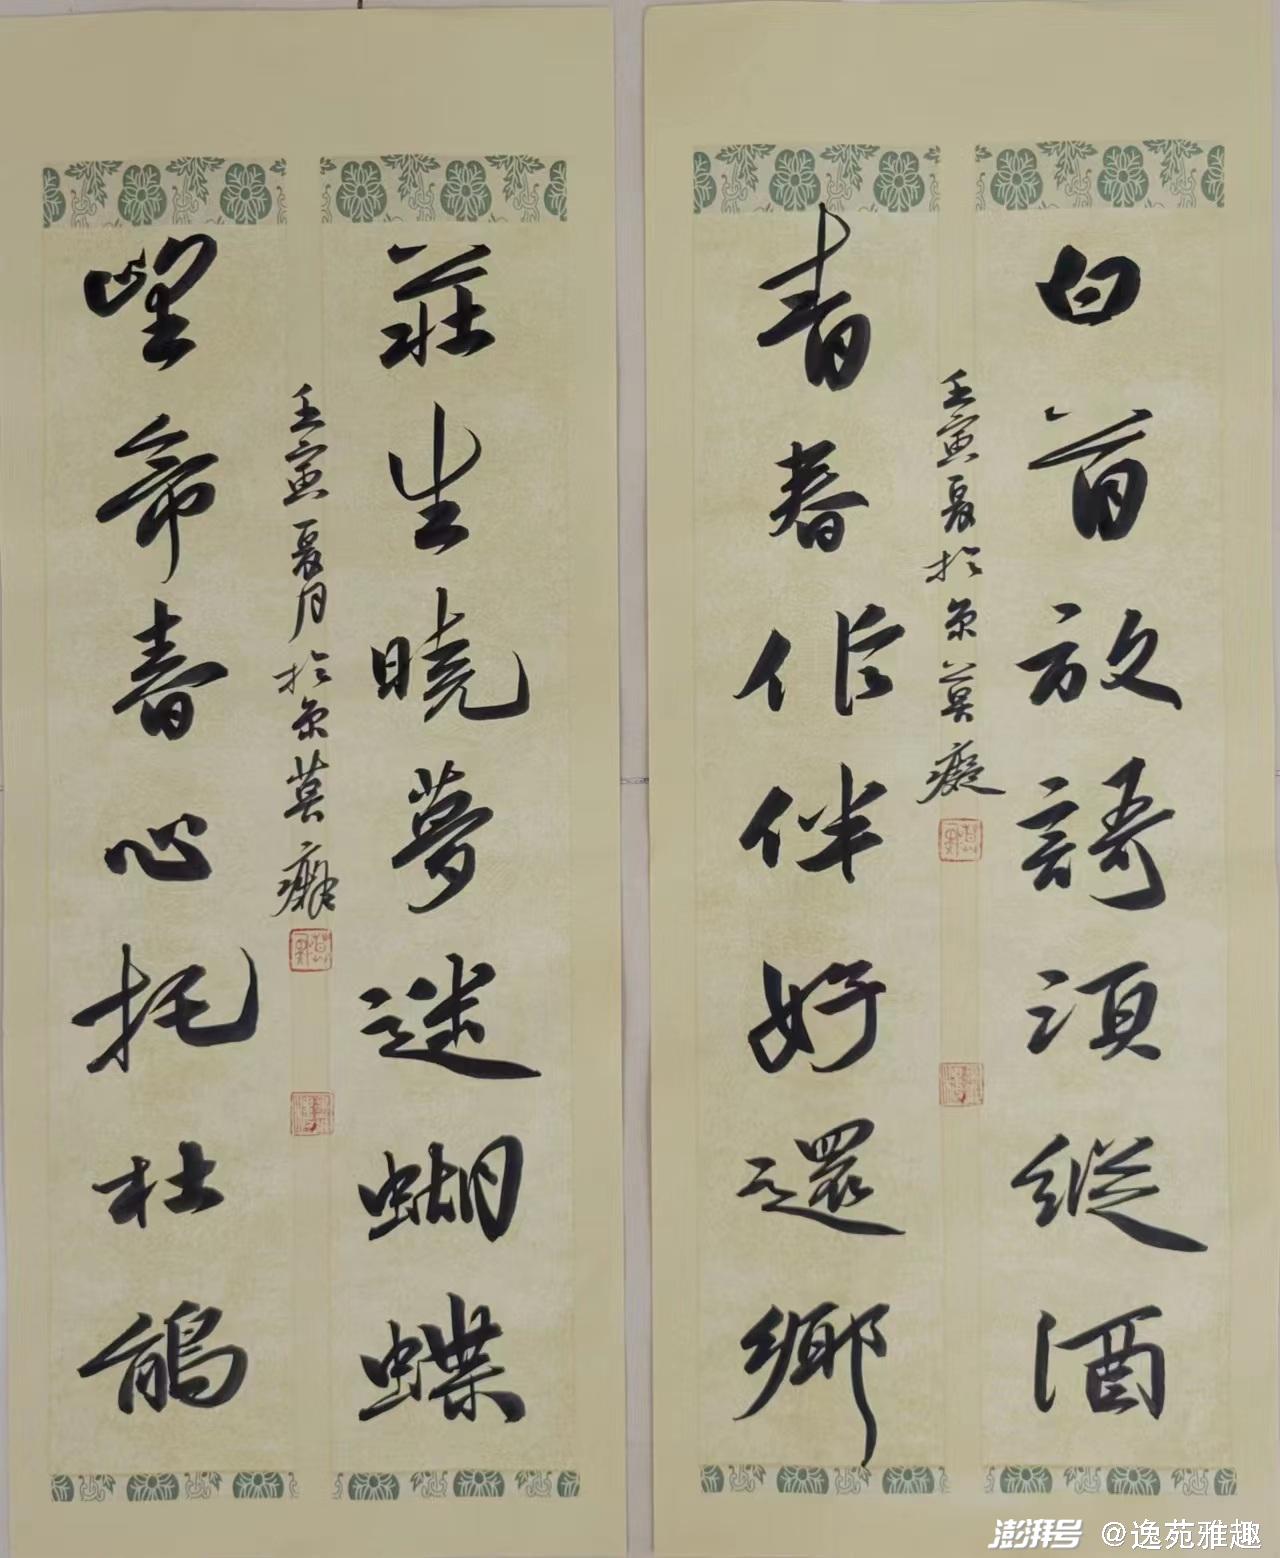 白首放謌須縱酒
青春作伴好還鄉
壬寅夏於京莫癡
莊生曉夢迷蝴蝶
望帝春心托杜鵑
壬寅夏月於京莫癡
澎湃号 @逸苑雅趣